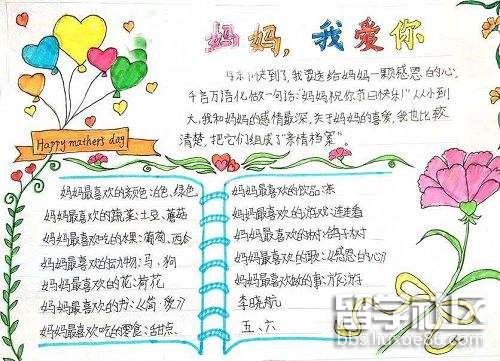 妈妈，我爱你
母亲节快到了，我要送给妈妈一颗感恩的心。
千言万语化做一句话：“妈妈祝你节日快乐！”从小到
大，我和妈妈的感情最深。关于妈妈的喜爱，我也比较
清楚，把它们组成了“亲情档案”。
Happy mathers day
妈妈最喜欢的颜色：白色、绿色
妈妈最喜欢的蔬菜：土豆、蘑菇
妈妈最喜欢吃的水果：葡萄、西
妈妈最喜欢的动物：马、狗
妈妈最喜欢的花：荷花
妈妈最喜欢的书：《简·爱》
妈妈最喜欢吃的零食：甜点
妈妈最喜欢的饮品：茶
妈妈最喜欢的游戏：连连看
妈妈最喜欢的树：鸽子树
妈妈最喜欢的歌：《感恩的心》
妈妈最喜欢做的事：旅游
李晓航
五、六
留学社区
bbs.liuxue86.com